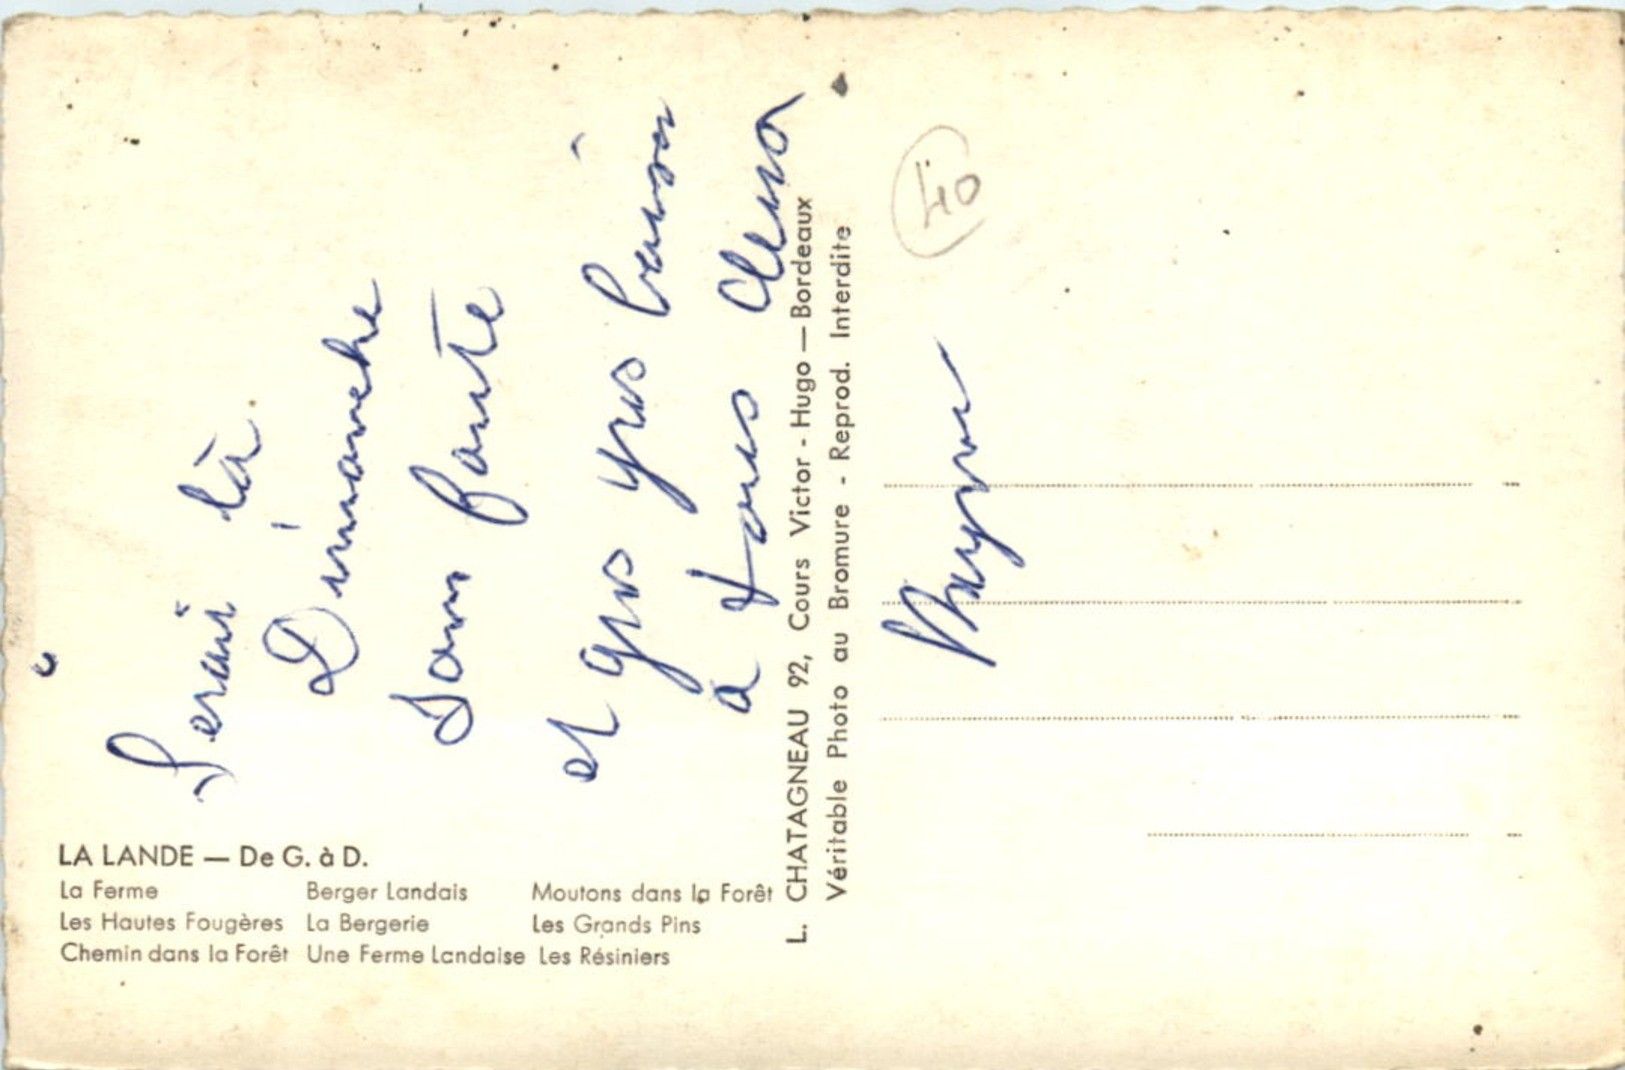 Serai là
Dimanche
sans faute
et gros gros baisers
a tous deux
LA LANDE — De G. à D.
La Ferme Berger Landais Moutons dans la Forêt
Les Hautes Fougères La Bergerie Les Grands Pins
Chemin dans la Forêt Une Ferme Landaise Les Résiniers
L. CHATAGNEAU 92, Cours Victor - Hugo — Bordeaux
Véritable Photo au Bromure - Reprod. Interdite
40